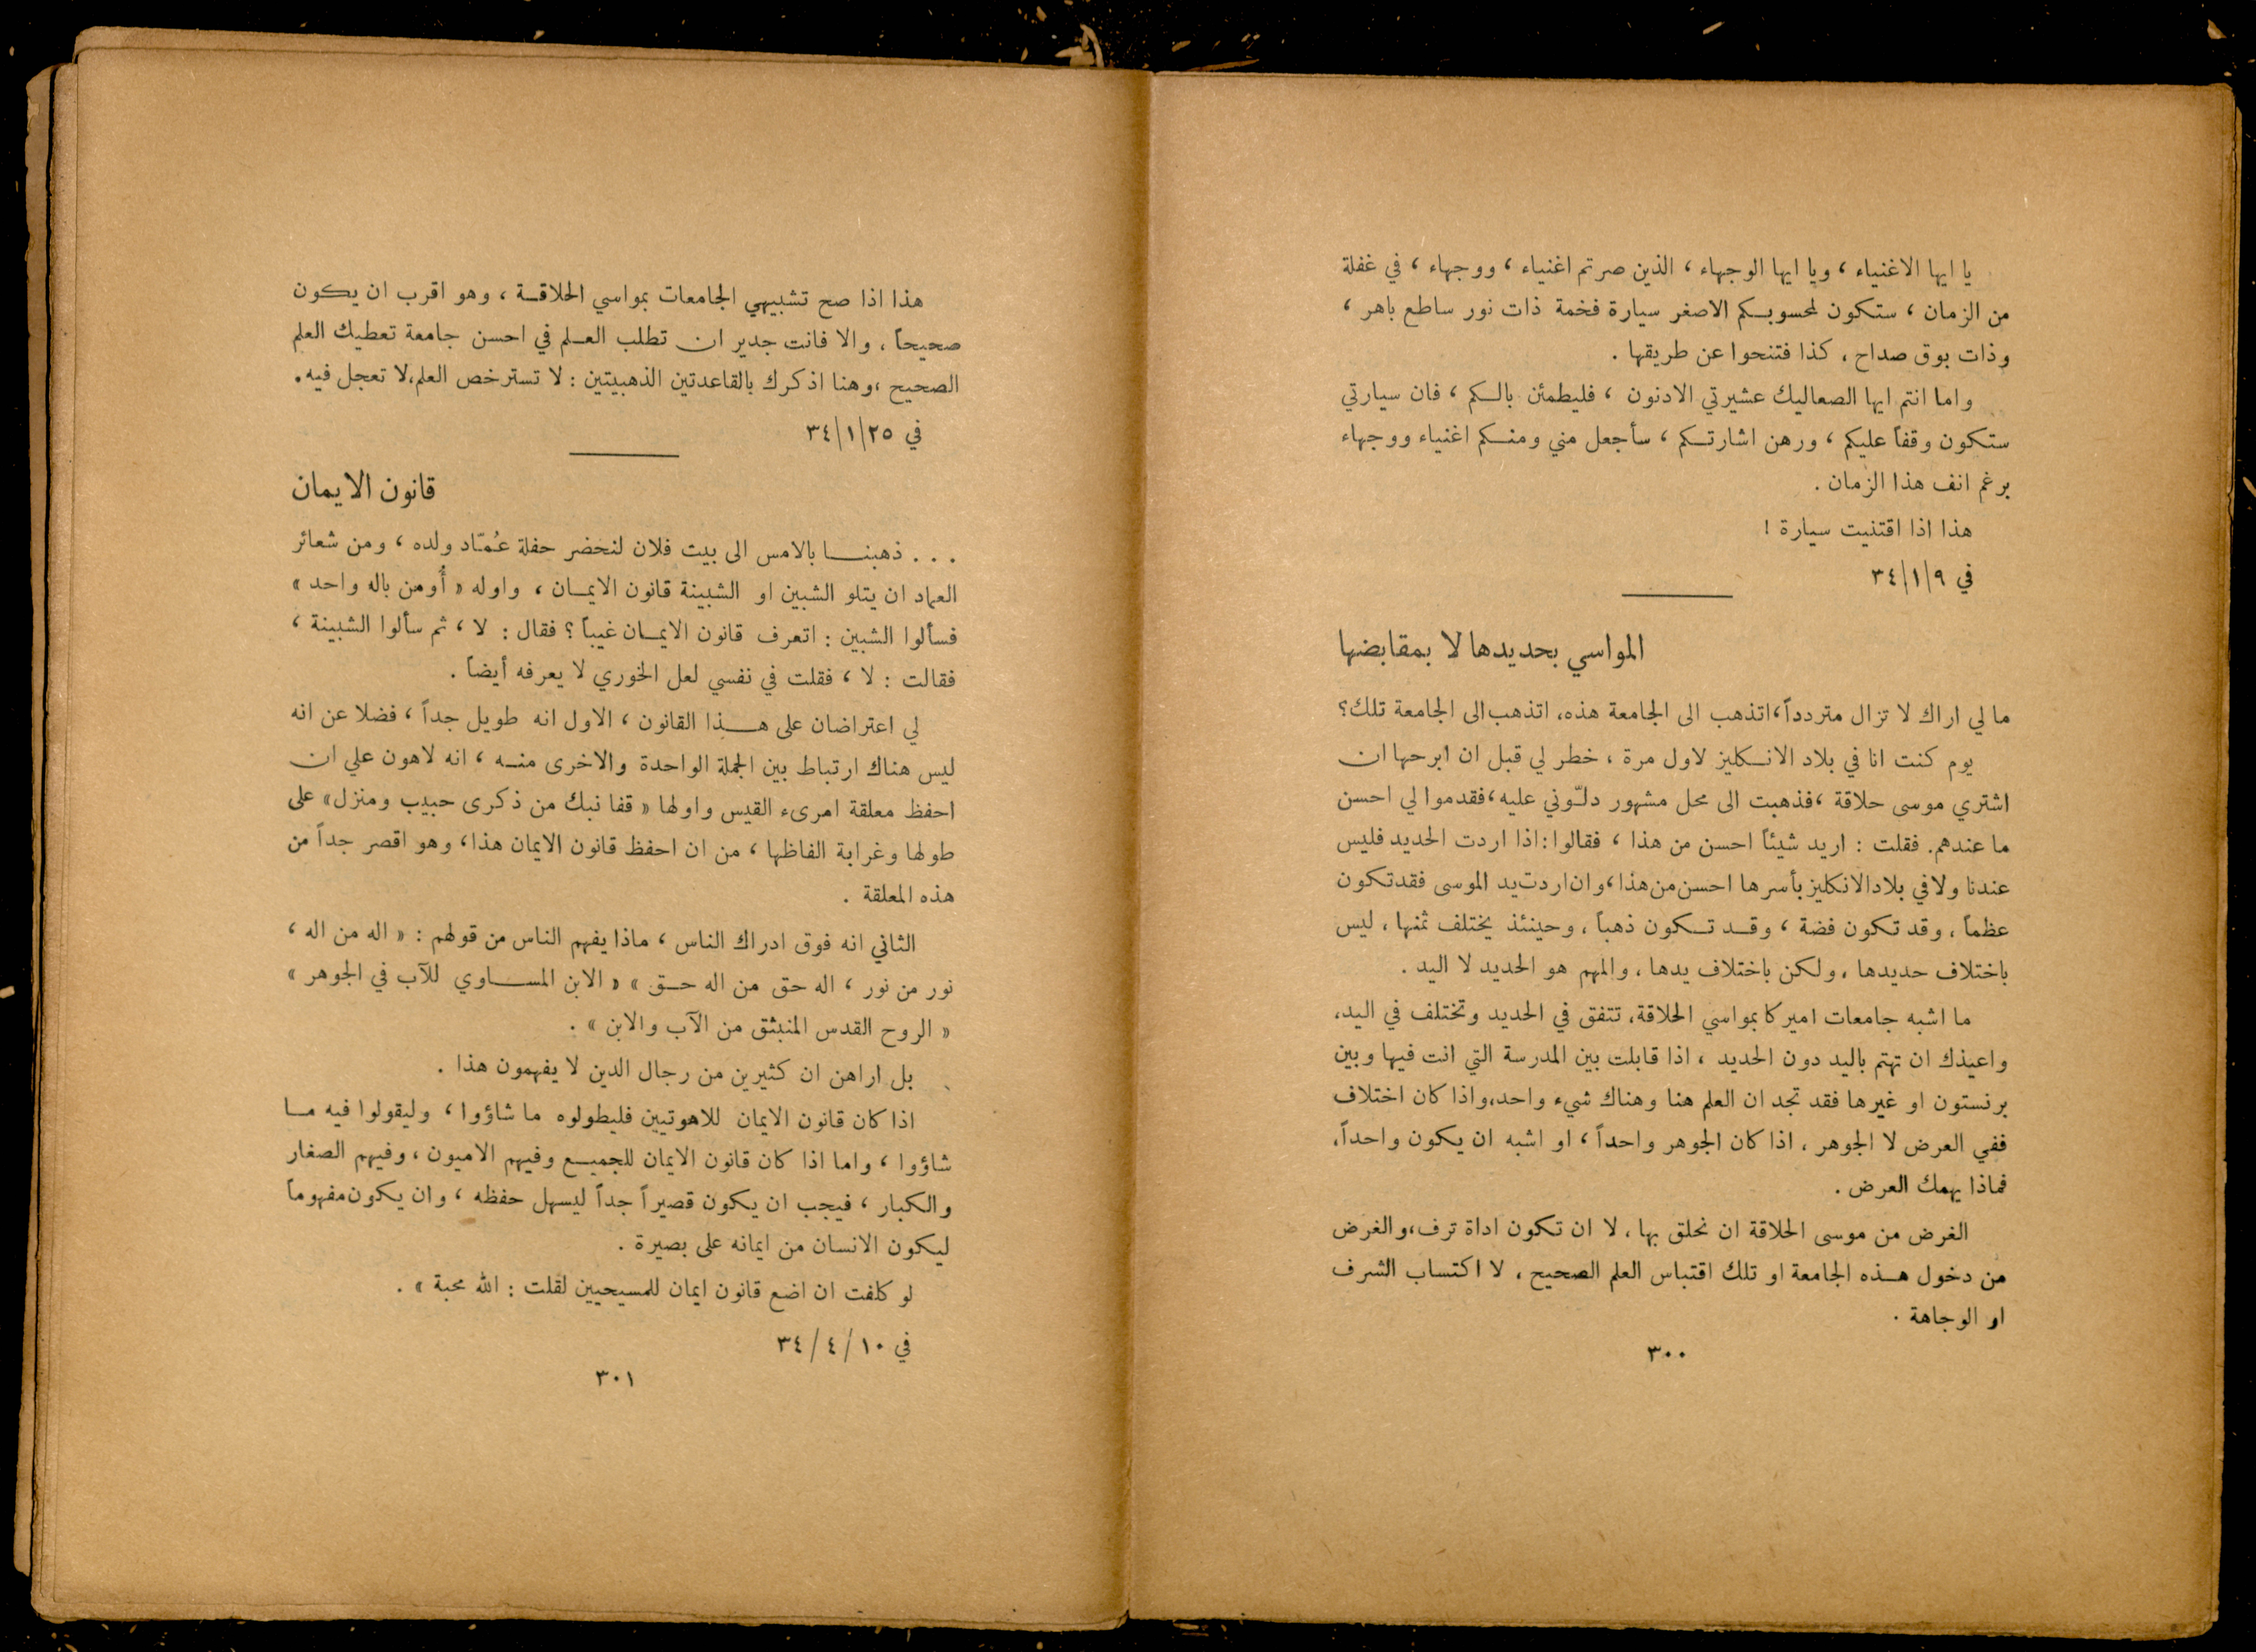 يا ايها الاغنياء ، ويا ايها الوجهاء ، الذين صرتم اغنياء ، ووجهاء ، في غفلة
من الزمان ، ستكون لمحسوبكم الاصغر سيارة فخمة ذات نور ساطع باهر ،
وذات بوق صداح ، كذا فتنحوا عن طريقها .
واما انتم ايها الصعاليك عشيرتي الادنون ، فليطمئن بالكم ، فان سيارتي
ستكون وقفاً عليكم ، ورهن اشارتكم ، سأجعل مني ومنكم اغنياء ووجهاء
برغم انف هذا الزمان .
هذا اذا اقتنيت سيارة !
في ٩/١/٣٤
المواسي بحديدها لا بمقابضها
ما لي اراك لا تزال متردداً، اتذهب الى الجامعة هذه، اتذهب الى الجامعة تلك؟
يوم كنت انا في بلاد الانكليز لاول مرة ، خطر لي قبل ان ابرحها ان
اشتري موسى حلاقة ، فذهبت الى محل مشهور دلّوني عليه، فقدموا لي احسن
ما عندهم. فقلت : اريد شيئاً احسن من هذا ، فقالوا: اذا اردت الحديد فليس
عندنا ولا في بلاد الانكليز بأسرها احسن من هذا، وان اردت يد الموسى فقد تكون
عظماً ، وقد تكون فضة ، وقد تكون ذهباً ، وحينئذ يختلف ثمنها ، ليس
باختلاف حديدها ، ولكن باختلاف يدها ، والمهم هو الحديد لا اليد .
ما اشبه جامعات اميركا بمواسي الحلاقة، تتفق في الحديد وتختلف في اليد،
واعيذك ان تهتم باليد دون الحديد ، اذا قابلت بين المدرسة التي انت فيها وبين
برنستون او غيرها فقد تجد ان العلم هنا وهناك شيء واحد، واذا كان اختلاف
ففي العرض لا الجوهر ، اذا كان الجوهر واحداً ، او اشبه ان يكون واحداً،
فماذا يهمك العرض .
الغرض من موسى الحلاقة ان نحلق بها ، لا ان تكون اداة ترف، والغرض
من دخول هذه الجامعة او تلك اقتباس العلم الصحيح ، لا اكتساب الشرف
او الوجاهة .
٣٠٠
هذا اذا صح تشبيهي الجامعات بمواسي الحلاقة ، وهو اقرب ان يكون
صحيحاً ، والا فانت جدير ان تطلب العلم في احسن جامعة تعطيك العلم
الصحيح ، وهنا اذكرك بالقاعدتين الذهبيتين : لا تسترخص العلم، لا تعجل فيه.
في ٢٥/١/٣٤
قانون الايمان
. . . ذهبنا بالامس الى بيت فلان لنحضر حفلة عُمّاد ولده ، ومن شعائر
العماد ان يتلو الشبين او الشبينة قانون الايمان ، واوله « أُومن باله واحد »
فسألوا الشبين : اتعرف قانون الايمان غيباً ؟ فقال : لا ، ثم سألوا الشبينة ،
فقالت : لا ، فقلت في نفسي لعل الخوري لا يعرفه أيضاً .
لي اعتراضان على هذا القانون ، الاول انه طويل جداً ، فضلا عن انه
ليس هناك ارتباط بين الجملة الواحدة والاخرى منه ، انه لاهون علي ان
احفظ معلقة امرىء القيس واولها « قفا نبك من ذكرى حبيب ومنزل » على
طولها وغرابة الفاظها ، من ان احفظ قانون الايمان هذا ، وهو اقصر جداً من
هذه المعلقة .
الثاني انه فوق ادراك الناس ، ماذا يفهم الناس من قولهم : « اله من اله ،
نور من نور ، اله حق من اله حق » « الابن المساوي للآب في الجوهر »
« الروح القدس المنبثق من الآب والابن » .
بل اراهن ان كثيرين من رجال الدين لا يفهمون هذا .
اذا كان قانون الايمان للاهوتيين فليطولوه ما شاؤوا ، وليقولوا فيه ما
شاؤوا ، واما اذا كان قانون الايمان للجميع وفيهم الاميون ، وفيهم الصغار
والكبار ، فيجب ان يكون قصيراً جداً ليسهل حفظه ، وان يكون مفهوماً
ليكون الانسان من ايمانه على بصيرة .
لو كلفت ان اضع قانون ايمان للمسيحيين لقلت : الله محبة » .
في ١٠ / ٤ / ٣٤
٣٠١